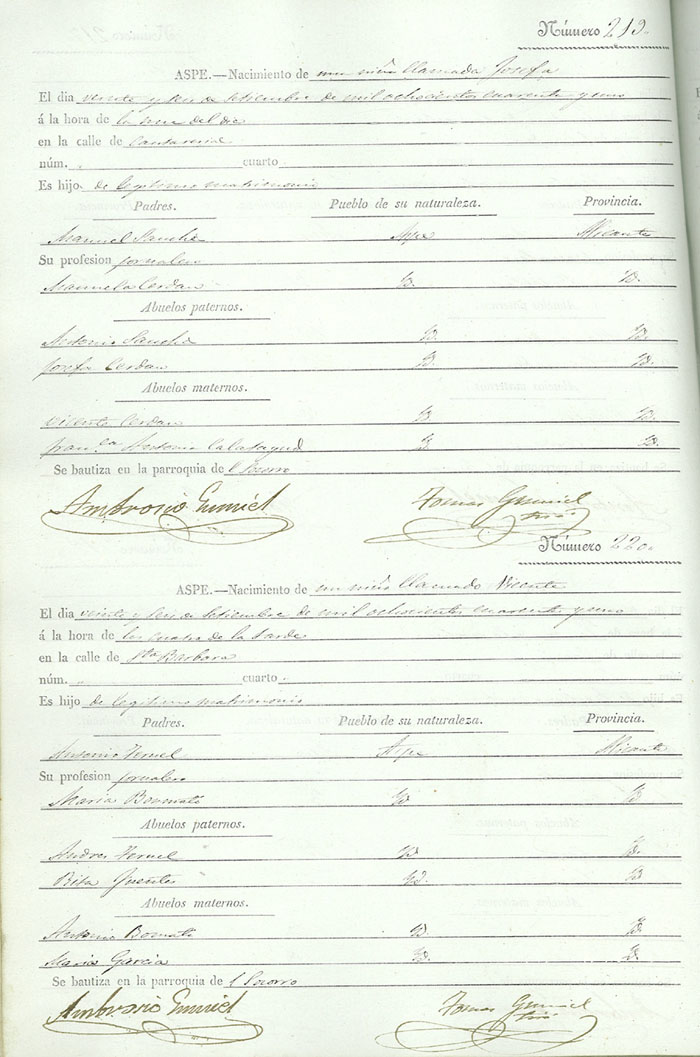 Número 219.
ASPE.—Nacimiento de una niña llamada Josefa
El dia veinte y seis de Setiembre de mil ochocientos cuarenta y uno
á la hora de la once del dia
en la calle de Cantareria
núm. cuarto
Es hija de legitimo matrimonio
Padres. Pueblo de su naturaleza. Provincia.
Manuel Sanchiz Aspe Alicante
Su profesion jornalero
Manuela Cerdan Yd. Yd.
Abuelos paternos.
Antonio Sanchiz Yd. Yd.
Josefa Cerdan Yd. Yd.
Abuelos maternos.
Vicente Cerdan Yd. Yd.
Fran.ca Antonia Calatayud Yd. Yd.
Se bautiza en la parroquia de el Socorro
Ambrosio Gumiel Tomas Gumiel
Número 220.
ASPE.—Nacimiento de un niño llamado Vicente
El dia veinte y seis de Setiembre de mil ochocientos cuarenta y uno
á la hora de las cuatro de la tarde
en la calle de Sta Barbara
núm. cuarto
Es hijo de legitimo matrimonio
Padres. Pueblo de su naturaleza. Provincia.
Antonio Aspe Alicante
Su profesion jornalero
Maria Yd. Yd.
Abuelos paternos.
Andres Yd. Yd.
Rita Fuentes Yd. Yd.
Abuelos maternos.
Antonio Yd. Yd.
Maria Garcia Yd. Yd.
Se bautiza en la parroquia de el Socorro
Ambrosio Gumiel Tomas Gumiel